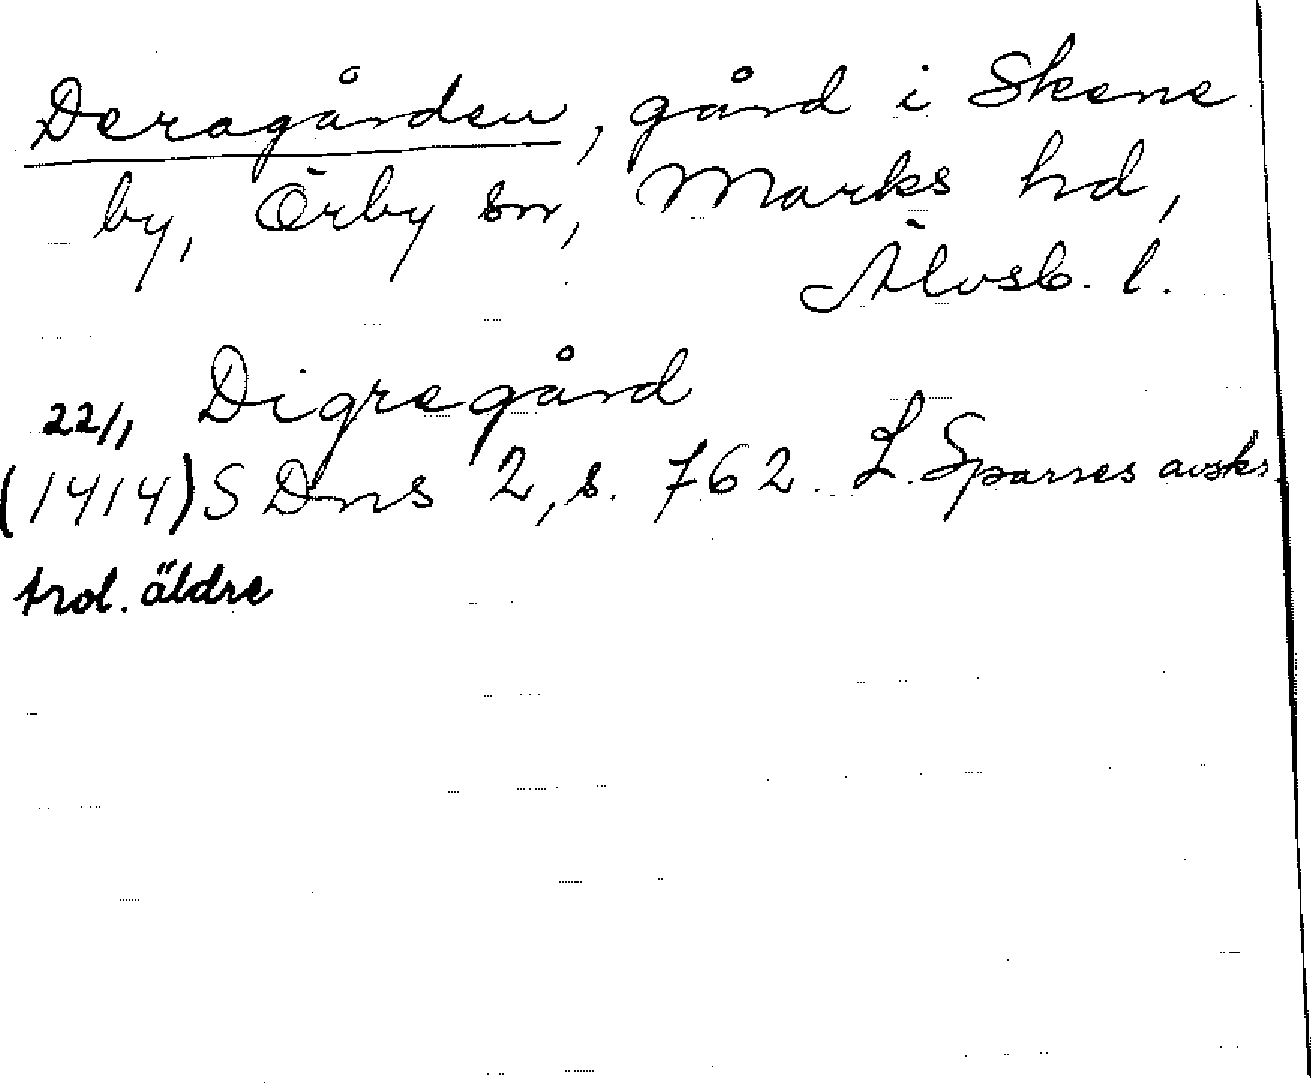 Deragården, gård i Skene
by, Örby sn, Marks hd,
Älvsb. l.
Digregård
22/1
(1414) S Dns 2, s. 762. L. Sparres avskr.
trol. äldre